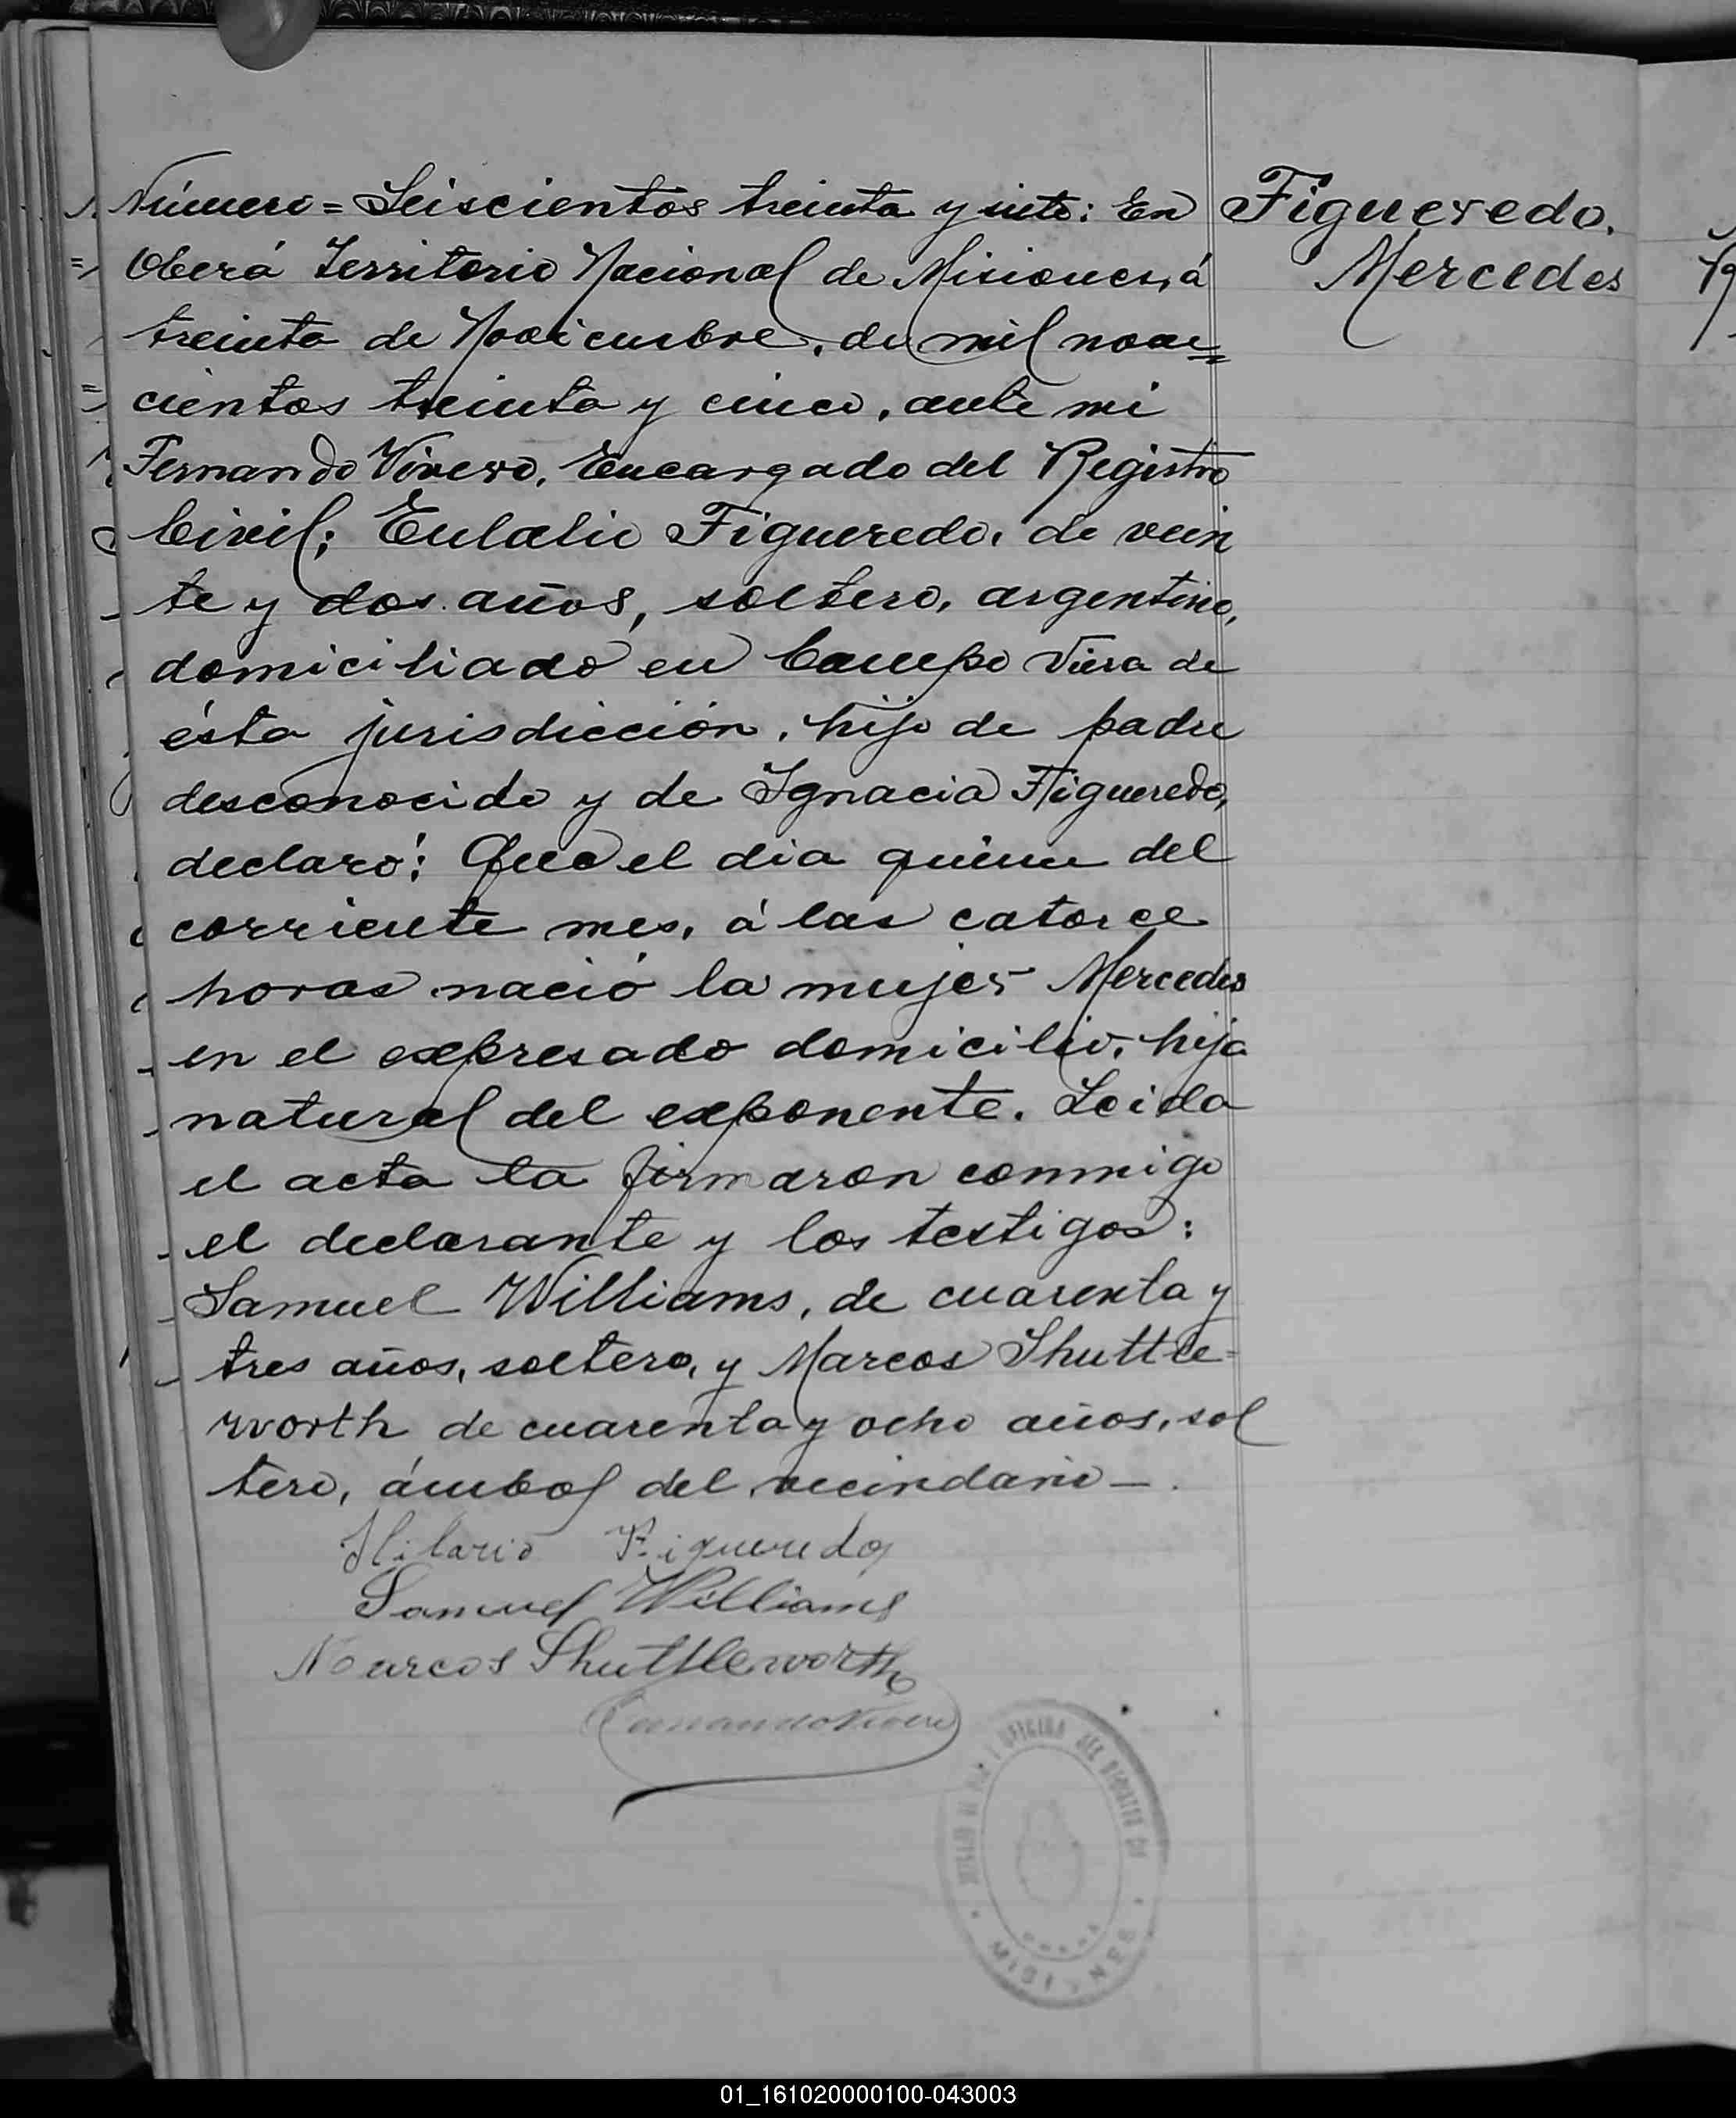 Número = Seiscientos treinta y siete: En
Oberá Territorio Nacional de Misiones, á
treinta de Noviembre, de mil nove=
cientos treinta y cinco, ante mi
Fernando Vivero, Encargado del Registro
Civil; Eulalio Figueredo, de vein
te y dos años, soltero, argentino,
domiciliado en Campo Viera de
ésta jurisdicción, hijo de padre
desconocido y de Ignacia Figueredo,
declaró: Que el dia quince del
corriente mes, á las catorce
horas nació la mujer Mercedes
en el expresado domicilio, hija
natural del exponente. Leida
el acta la firmaron conmigo
el declarante y los testigos:
Samuel Williams, de cuarenta y
tres años, soltero, y Marcos Shuttle=
worth de cuarenta y ocho años, sol
tero, ámbos del vecindario —.
Hilario Figueredo
Samuel Williams
Marcos Shuttleworth
Fernando Vivero
Figueredo.
Mercedes
MISIONES
01_161020000100-043003